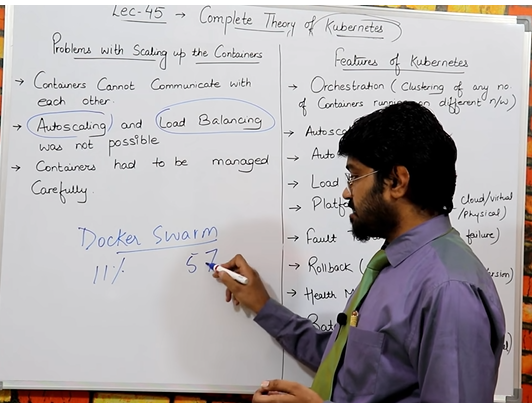 Lec-45 → Complete Theory of Kubernetes
Problems with Scaling up the Containers
→ Containers Cannot Communicate with
each other.
→ Autoscaling and Load Balancing
was not possible
→ Containers had to be managed
Carefully.
Docker Swarm
11% 57
Features of Kubernetes
→ Orchestration (Clustering of any no.
of Containers running on different n/w)
→
→
→ Load
→ cloud/virtual
/Physical)
→ Fault failure)
→ Rollback (
→ Health